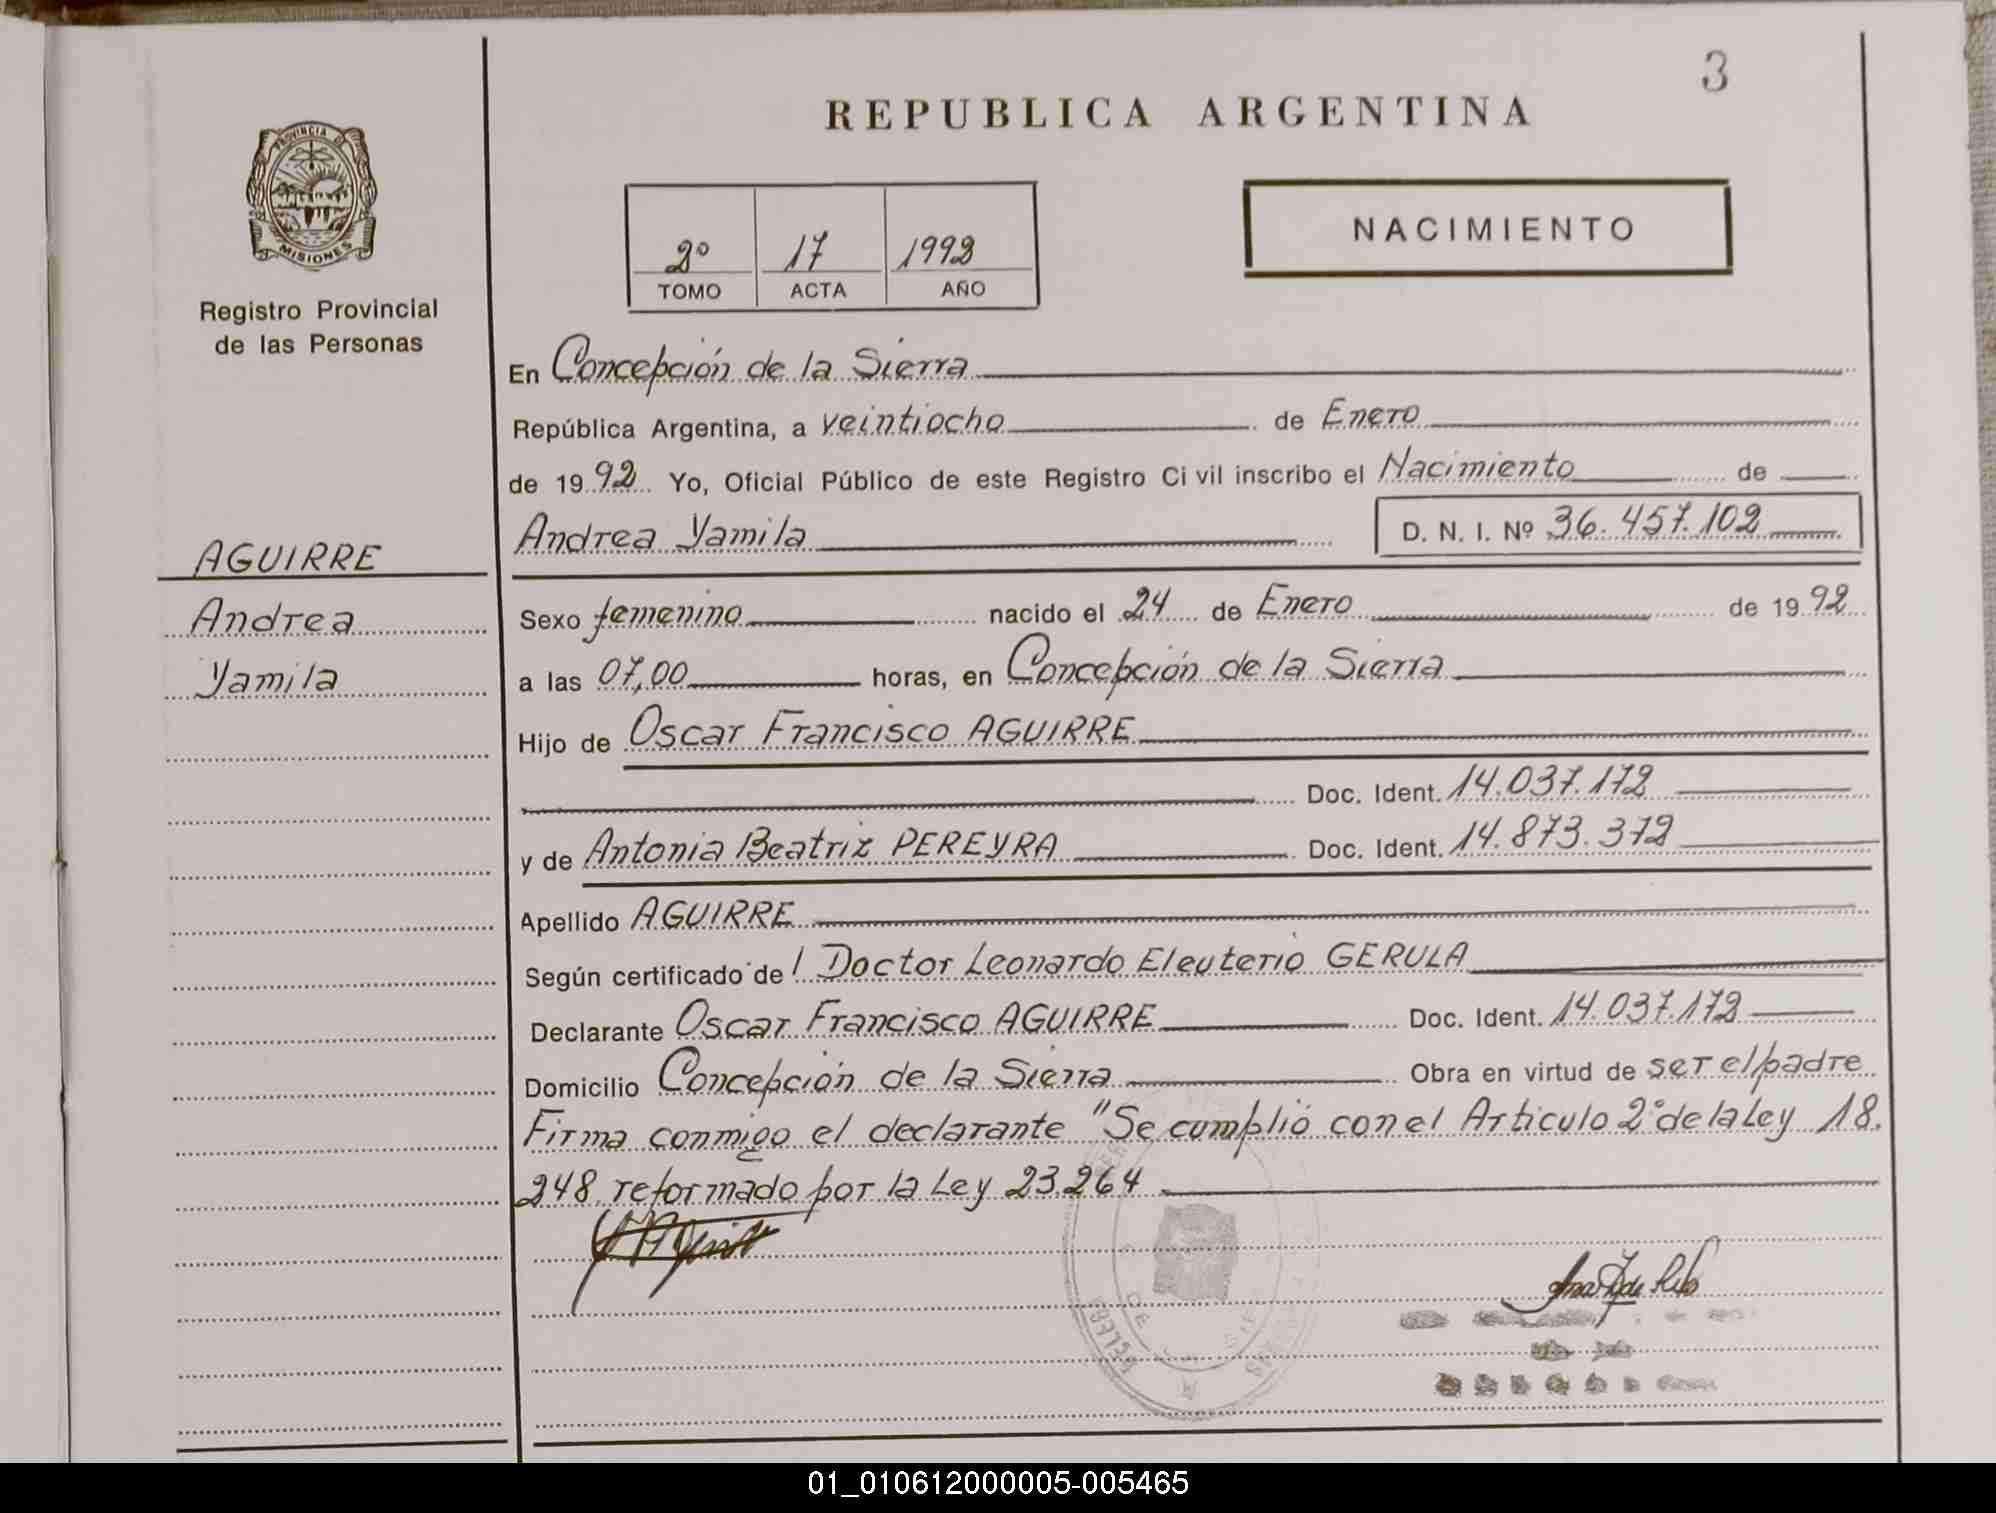 3
REPUBLICA ARGENTINA
PROVINCIA DE
MISIONES
Registro Provincial
de las Personas
2º 17 1992
TOMO ACTA AÑO
NACIMIENTO
En Concepción de la Sierra
República Argentina, a veintiocho de Enero
de 1992 Yo, Oficial Público de este Registro Civil inscribo el Nacimiento de
Andrea Yamila D. N. I. Nº 36.457.102
AGUIRRE
Andrea
Yamila
Sexo femenino nacido el 24 de Enero de 1992
a las 07,00 horas, en Concepción de la Sierra
Hijo de Oscar Francisco AGUIRRE
Doc. Ident. 14.037.172
y de Antonia Beatriz PEREYRA Doc. Ident. 14.873.372
Apellido AGUIRRE
Según certificado de l Doctor Leonardo Eleuterio GERULA
Declarante Oscar Francisco AGUIRRE Doc. Ident. 14.037.172
Domicilio Concepción de la Sierra Obra en virtud de ser el padre
Firma conmigo el declarante "Se cumplió con el Articulo 2º de la Ley 18.
248. reformado por la Ley 23.264
01_010612000005-005465